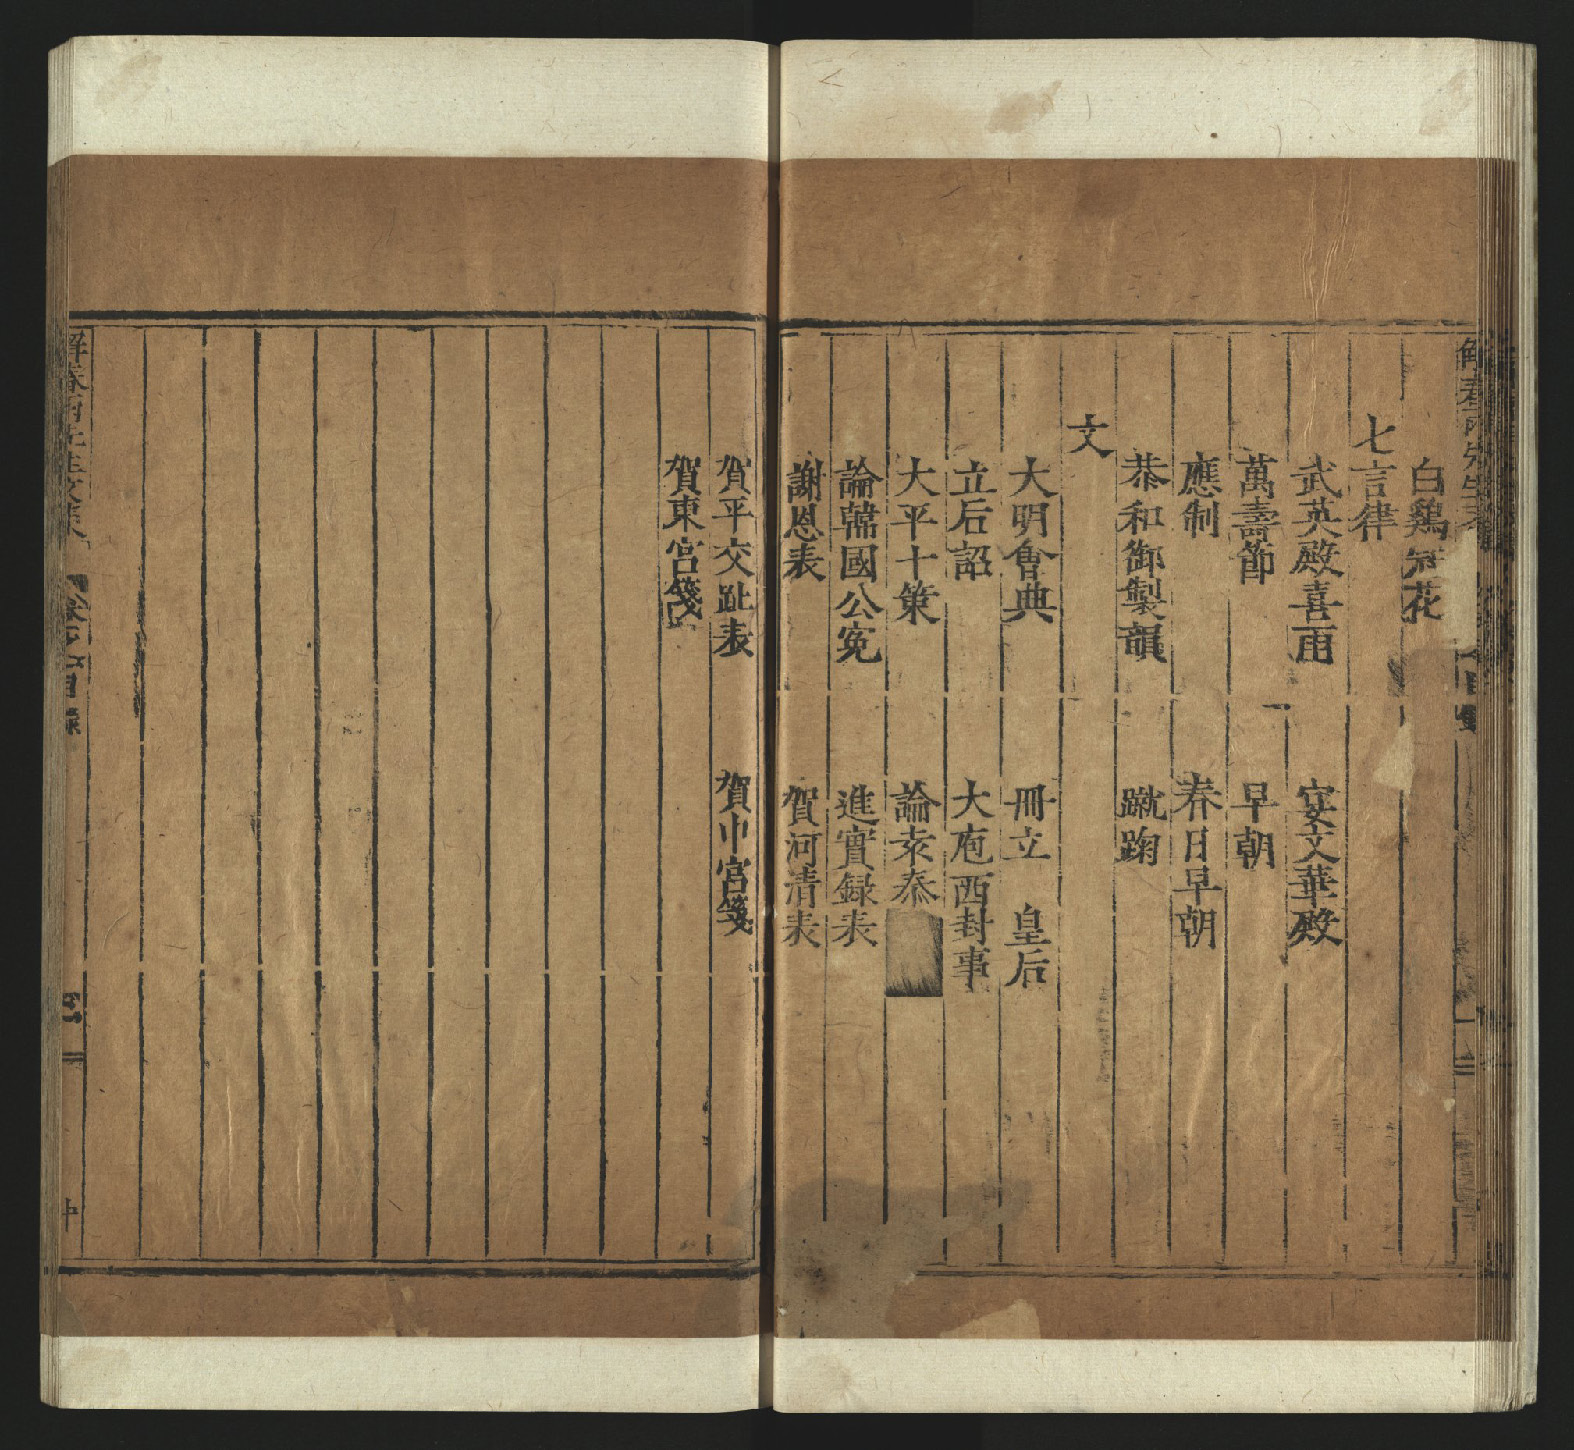 白鷄冠花
七言律
武英殿喜雨　宴文華殿
萬壽節　早朝
應制　春日早朝
恭和御製韻　蹴踘
文
大明會典　冊立　皇后
立后詔　大庖西封事
大平十策　論袁泰
論韓國公寃　進實録表
謝恩表　賀河清表
賀平交趾表　賀中宮箋
賀東宮箋
解春雨先生文集
目錄